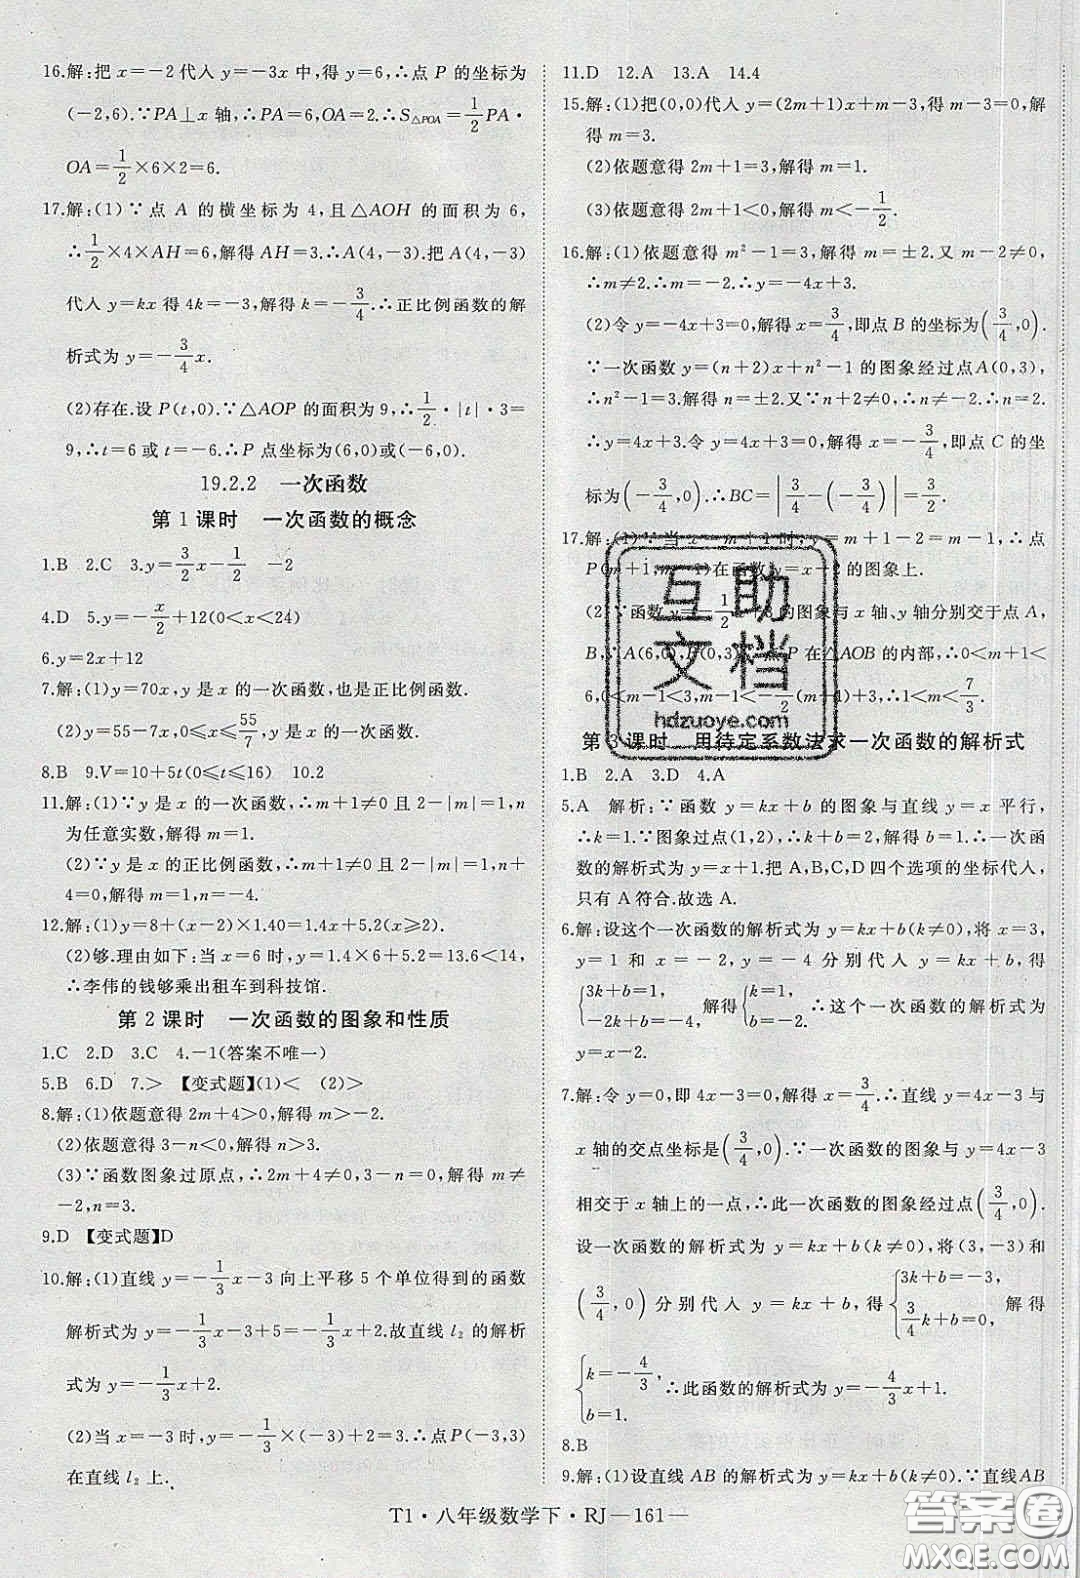 16.解:把 x=-2代入 y=-3x 中,得 y=6,∴点 P 的坐标为
(-2,6).∵PA⊥x 轴,∴PA=6,OA=2.∴S△POA=1/2PA·
OA=1/2×6×2=6.
17.解:(1)∵点 A 的横坐标为 4,且△AOH 的面积为 6,
∴1/2×4×AH=6,解得 AH=3.∴A(4,-3).把 A(4,-3)
代入 y=kx 得 4k=-3,解得 k=-3/4.∴正比例函数的解
析式为 y=-3/4x.
(2)存在.设 P(t,0).∵△AOP 的面积为 9,∴1/2·|t|·3=
9,∴t=6 或 t=-6.∴P 点坐标为(6,0)或(-6,0).
19.2.2 一次函数
第 1 课时 一次函数的概念
1.B 2.C 3.y=3/2x-1/2 -2
4.D 5.y=-x/2+12(0<x<24)
6.y=2x+12
7.解:(1)y=70x,y 是 x 的一次函数,也是正比例函数.
(2)y=55-7x,0≤x≤55/7,y 是 x 的一次函数.
8.B 9.V=10+5t(0≤t≤16) 10.2
11.解:(1)∵y 是 x 的一次函数,∴m+1≠0 且 2-|m|=1,n
为任意实数,解得 m=1.
(2)∵y 是 x 的正比例函数,∴m+1≠0 且 2-|m|=1,n+
4=0,解得 m=1,n=-4.
12.解:(1)y=8+(x-2)×1.40=1.4x+5.2(x≥2).
(2)够.理由如下:当 x=6 时,y=1.4×6+5.2=13.6<14,
∴李伟的钱够乘出租车到科技馆.
第 2 课时 一次函数的图象和性质
1.C 2.D 3.C 4.-1(答案不唯一)
5.B 6.D 7.> 【变式题】(1)< (2)>
8.解:(1)依题意得 2m+4>0,解得 m>-2.
(2)依题意得 3-n<0,解得 n>3.
(3)∵函数图象过原点,∴2m+4≠0,3-n=0,解得 m≠
-2,n=3.
9.D 【变式题】D
10.解:(1)直线 y=-1/3x-3 向上平移 5 个单位得到的函数
解析式为 y=-1/3x-3+5=-1/3x+2.故直线 l₂ 的解析
式为 y=-1/3x+2.
(2)当 x=-3 时,y=-1/3×(-3)+2=3,∴点 P(-3,3)
在直线 l₂ 上.
11.D 12.A 13.A 14.4
15.解:(1)把(0,0)代入 y=(2m+1)x+m-3,得 m-3=0,解
得 m=3.
(2)依题意得 2m+1=3,解得 m=1.
(3)依题意得 2m+1<0,解得 m<-1/2.
16.解:(1)依题意得 m²-1=3,解得 m=±2.又 m-2≠0,
∴m≠2.∴m=-2.∴y=-4x+3.
(2)令 y=-4x+3=0,解得 x=3/4,即点 B 的坐标为(3/4,0).
∵一次函数 y=(n+2)x+n²-1 的图象经过点A(0,3),
∴n²-1=3,解得 n=±2.又∵n+2≠0,∴n≠-2.∴n=2.
∴y=4x+3.令 y=4x+3=0,解得 x=-3/4,即点 C 的坐
标为(-3/4,0).∴BC=|3/4-(-3/4)|=3/2.
17.解:(1)∵当 x=m+1 时,y=m+1-2=m-1,∴点
P(m+1,m-1)在函数 y=x-2 的图象上.
(2)∵函数 y=-1/2x+3 的图象与 x 轴、y 轴分别交于点 A,
B,∴A(6,0),B(0,3).∵点P 在△AOB 的内部,∴0<m+1<
6,0<m-1<3,m-1<-1/2(m+1)+3,∴1<m<7/3.
第 3 课时 用待定系数法求一次函数的解析式
1.B 2.A 3.D 4.A
5.A 解析:∵函数 y=kx+b 的图象与直线 y=x 平行,
∴k=1.∵图象过点(1,2),∴k+b=2,解得 b=1.∴一次函
数的解析式为 y=x+1.把 A,B,C,D 四个选项的坐标代入,
只有 A 符合.故选 A.
6.解:设这个一次函数的解析式为 y=kx+b(k≠0),将 x=3,
y=1 和 x=-2,y=-4 分别代入 y=kx+b,得
{3k+b=1, -2k+b=-4, 解得{k=1, b=-2. ∴这个一次函数的解析式为
y=x-2.
7.解:令 y=0,即 4x-3=0,解得 x=3/4.∴直线 y=4x-3 与
x 轴的交点坐标是(3/4,0).∵一次函数的图象与 y=4x-3
相交于 x 轴上的一点,∴此一次函数的图象经过点(3/4,0).
设一次函数的解析式为 y=kx+b(k≠0),将(3,-3)和
(3/4,0)分别代入 y=kx+b,得{3k+b=-3, 3/4k+b=0, 解得
{k=-4/3, b=1. ∴此函数的解析式为 y=-4/3x+1.
8.B
9.解:(1)设直线 AB 的解析式为 y=kx+b(k≠0).∵直线AB
T1·八年级数学下·RJ—161—
互助
文档
hdzuoye.com
答案圈
MXQE.COM